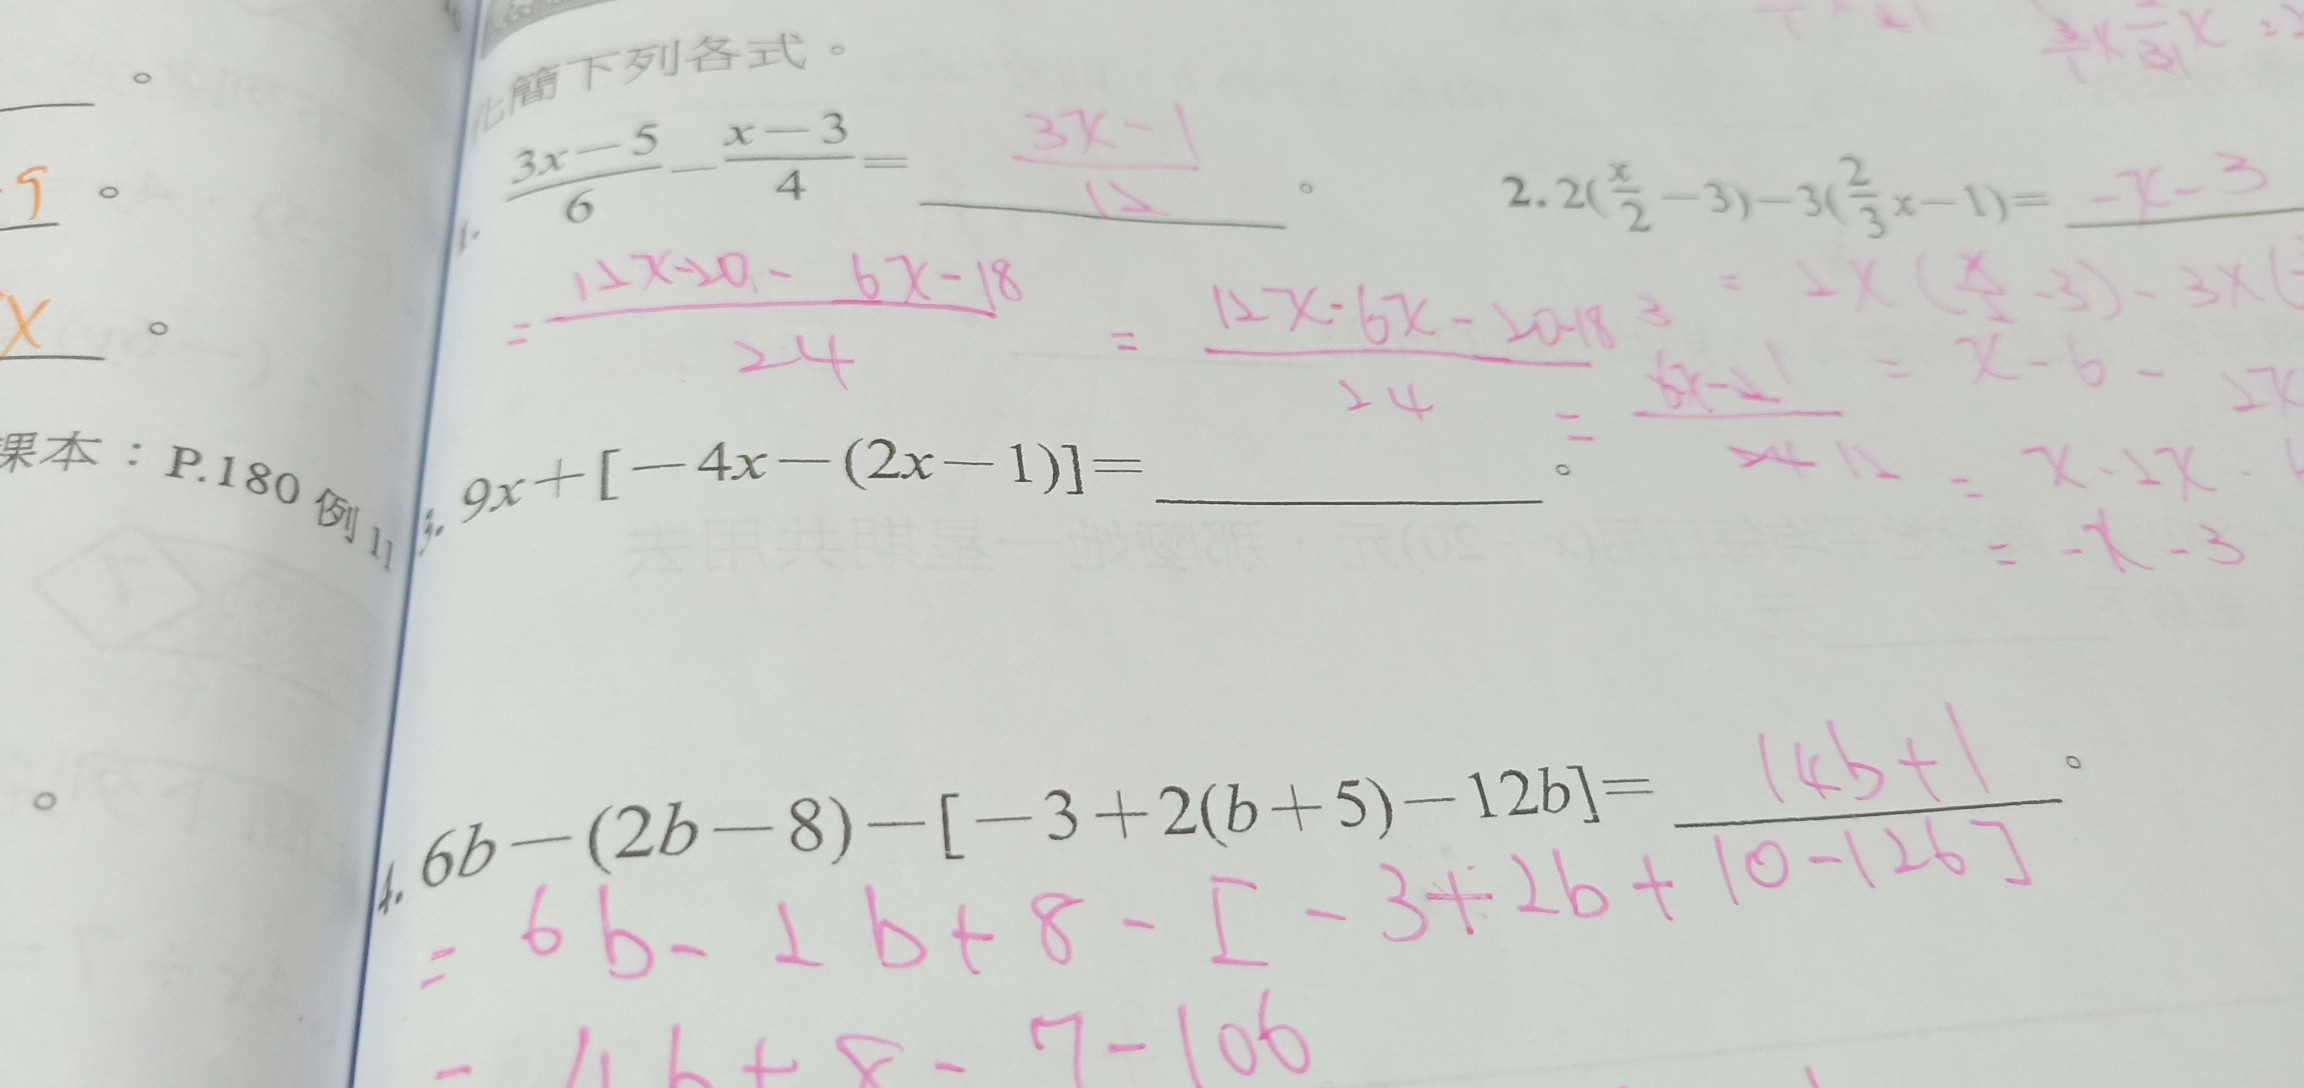 化簡下列各式。
1. (3x－5)/6－(x－3)/4＝ (3x-1)/12 。
= (12x-20 - 6x-18)/24 = (12x-6x-20-18)/24
= 12
2. 2(x/2－3)－3(2/3x－1)＝ -x-3
= 2×(x/2-3)-3×(
= x-6-2x
= x-2x-
= -x-3
3. 9x＋[－4x－(2x－1)]＝ 。
4. 6b－(2b－8)－[－3＋2(b＋5)－12b]＝ 14b+1 。
= 6b-2b+8-[-3+2b+10-12b]
= 4b+8-7-10b
9 。
x 。
課本：P.180 例11